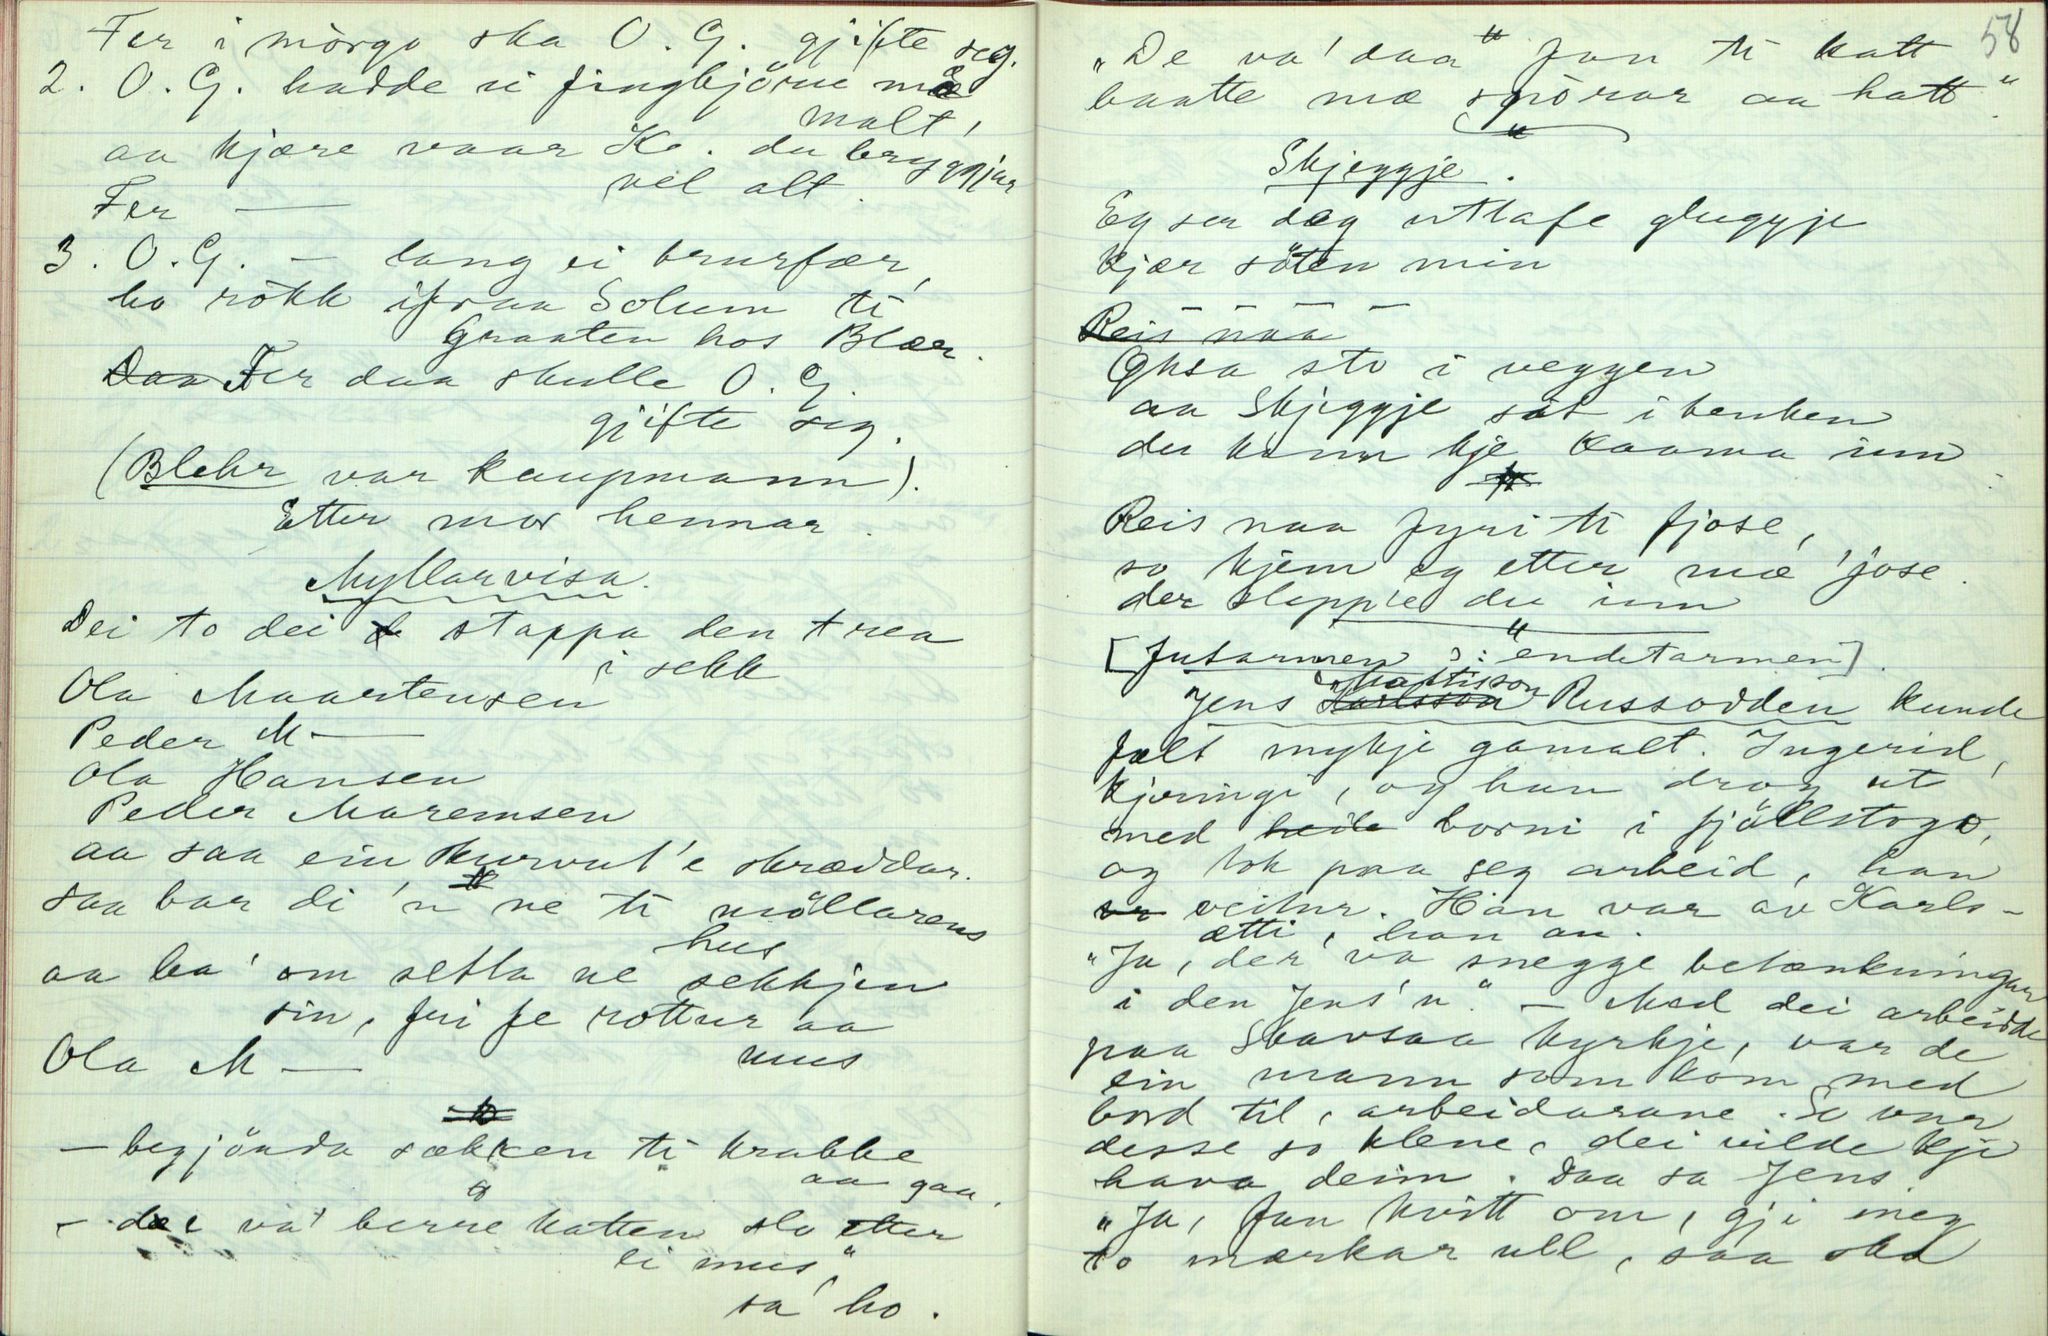 Fer i mørgo ska O. G. gjifte seg.
2. O. G. hadde ei fingbjørne mæ
malt,
aa kjære vaar K. du bryggjar
vel alt.
Fer —
3. O. G. — lang ei brurfær,
ho rökk ifraa Solum ti
Graaten hos Blær.
Daa Fer daa skulle O. G.
gjifte sig.
(Blehr var kaupmann).
Etter mor hennar.
Myllarvisa.
Dei to dei stappa den trea
i sekk
Ola Maartensen
Peder M —
Ola Hansen
Peder Maremsen
aa saa ein kurvut'e skræddar.
saa bar di 'n ne ti möllarens
hus
aa ba' om setta ne sekkjen
sin, fri fe rottur aa
mus
Ola M —
— begjönda sækken ti krabbe
aa gaa.
— "dæ va' berre katten slo etter
ei mus",
sa' ho.
58
"De va' daa" fan ti katt
baatte mæ snörar aa hatt."
Skjeggje.
Eg ser deg utlafe gluggje
kjær söten min
— — —
Reis naa
Öksa sto i veggen
aa Skjeggje sat i benken
du kann kje kaama inn.
Reis naa fyri ti fjose,
so kjem eg etter mæ 'jose.
der sleppe du inn
[Futarmen ɔ: endetarmen].
Jens Karlsson Mattisson Russodden kunde
falt mykje gamalt. Ingerid,
kjeringi, og han drog ut
med heile borni i fjöllstogo,
og tok paa seg arbeid, han
veitur. Han var av Karls-
ætti, han au.
"Ja, der va snegge betænkningar
i den Jens'n." — Med dei arbeidde
paa Skavsaa kyrkje, var de
ein mann som kom med
bord til, arbeidarane. So var
desse so klene, dei vilde kje
hava deim. Daa sa Jens
"Ja, fan kvitt om, gji meg
to markar ull, saa ska